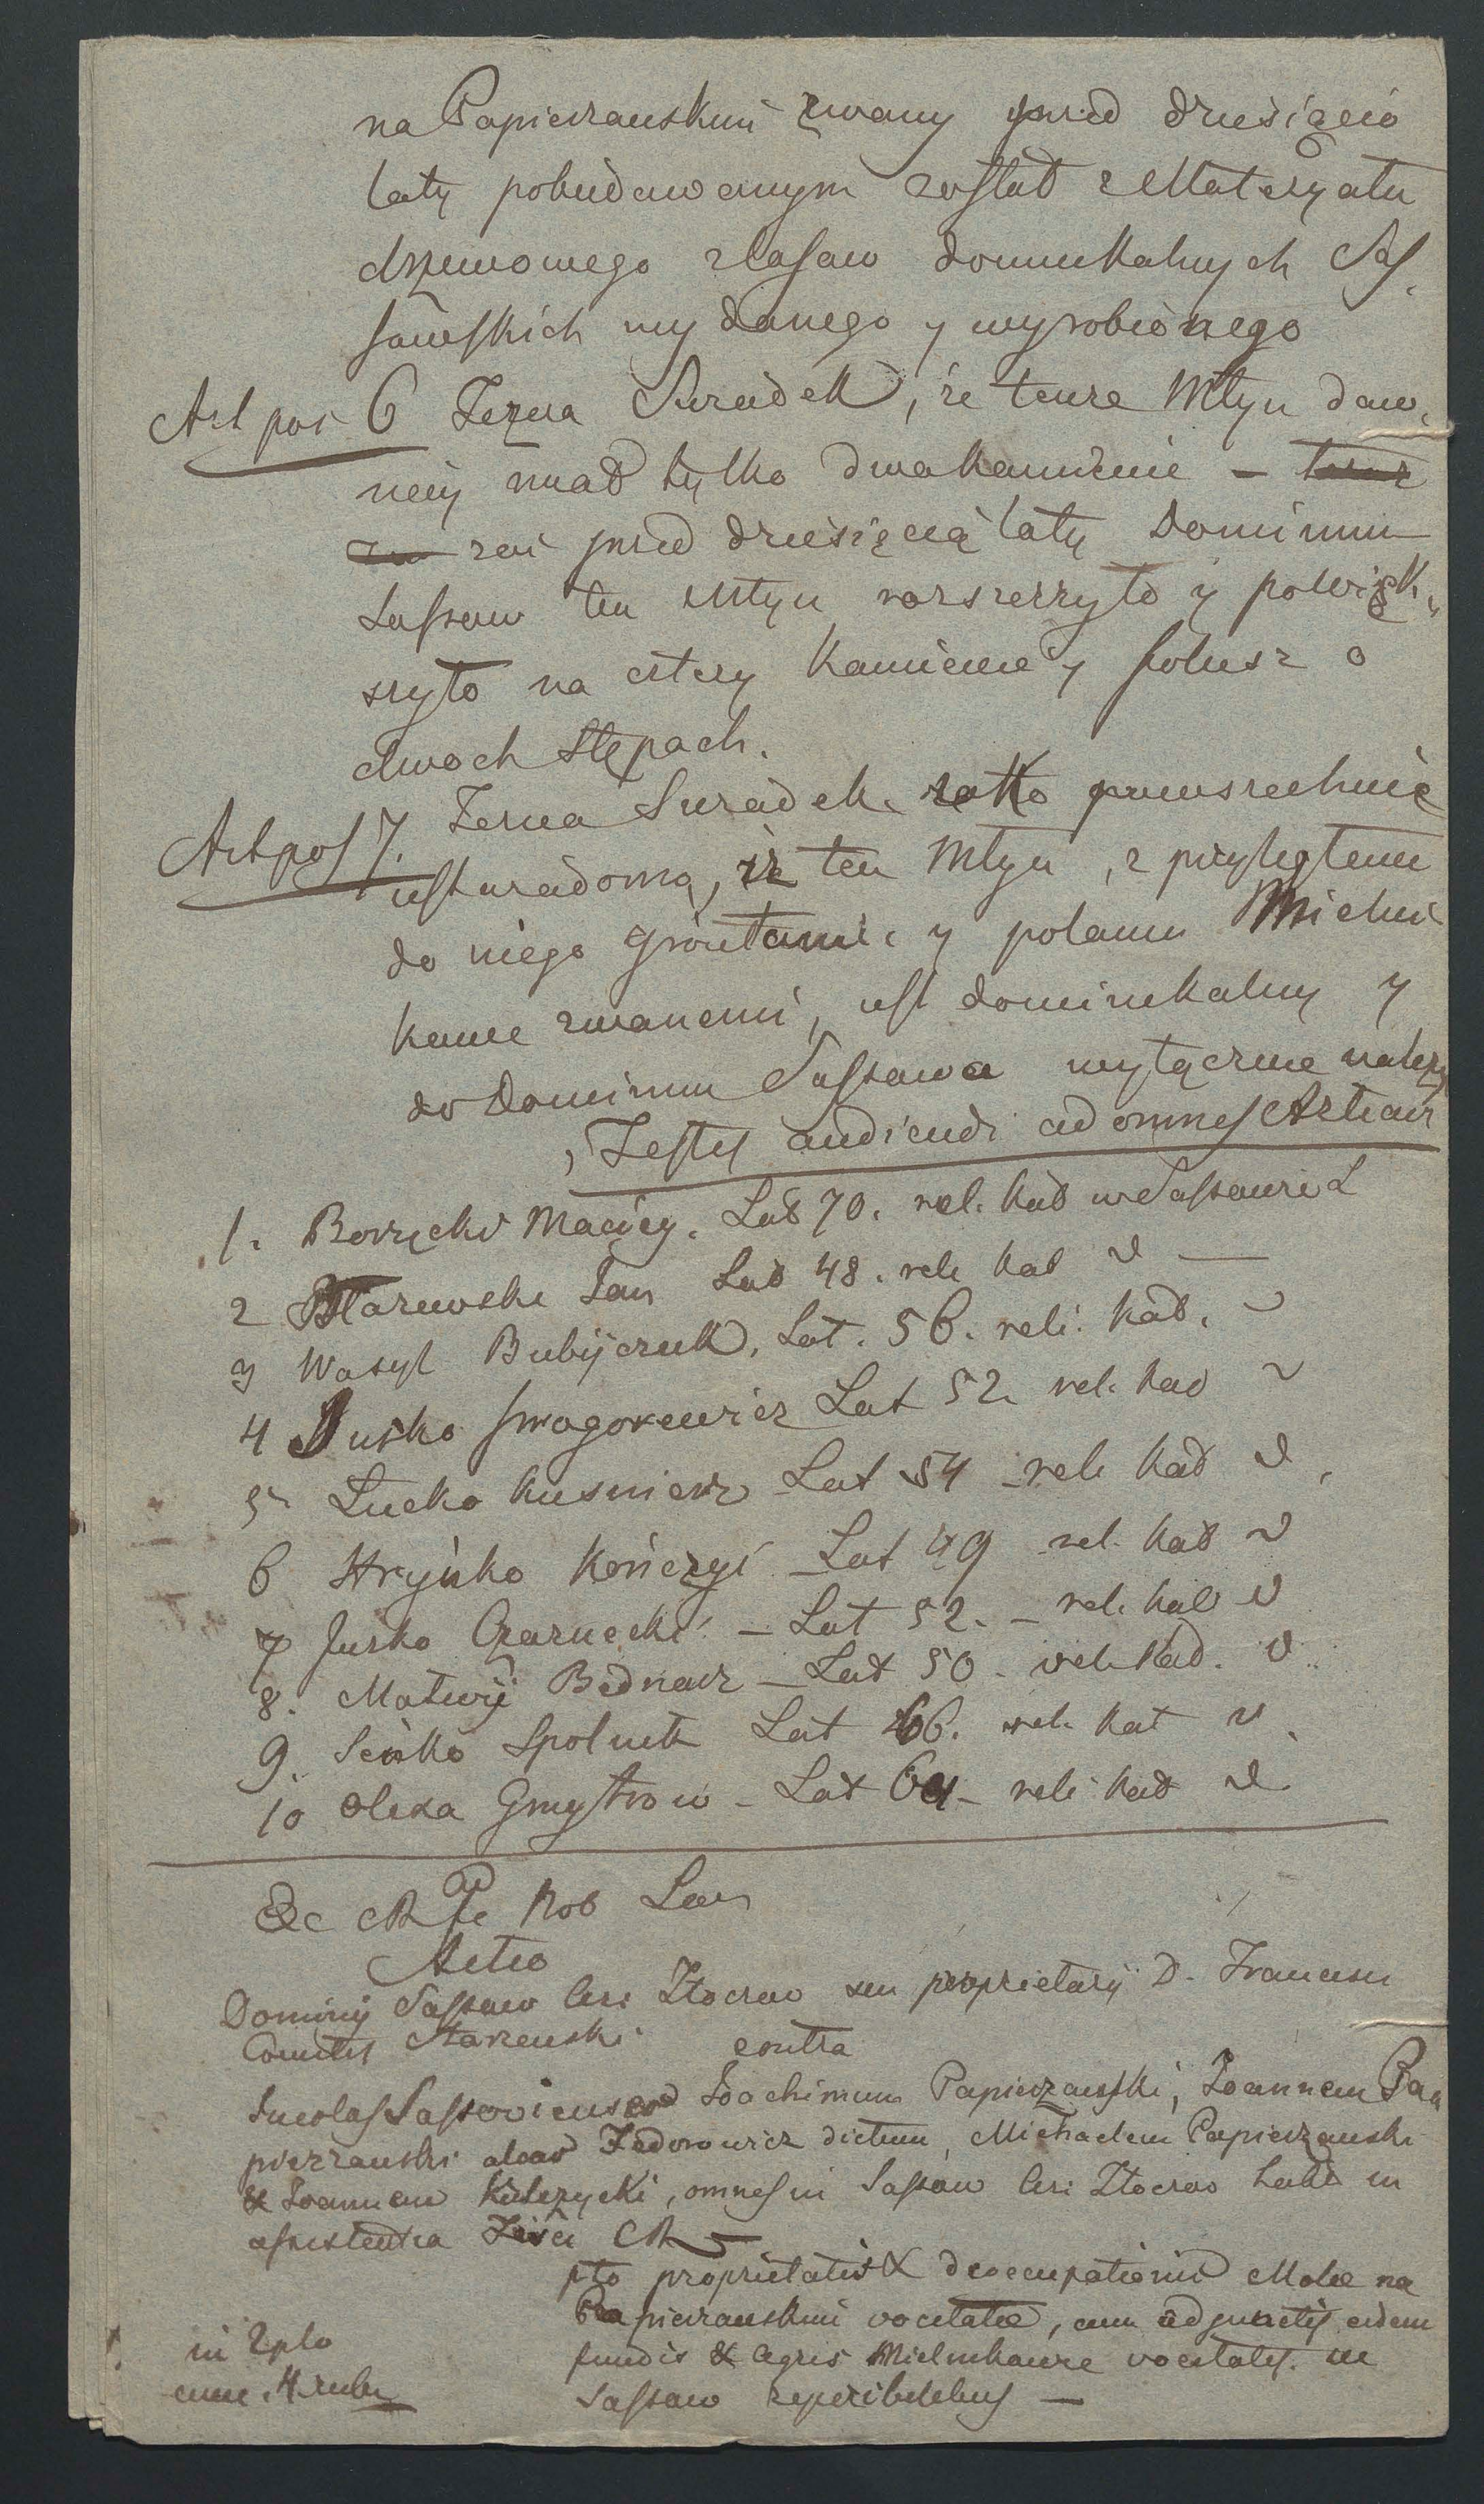 na Papierzanskim zwany przed dziesięcio
laty pobudowanym został z Materyału
drzewowego z lasow dominikalnych Sas
sowskich wydanego y wyrobionego
Art pos 6 Zezna Swiadek, że tenze Młyn daw
niey miał tylko dwa kamienie –
zas przed dziesięcią laty Dominium
Sassow ten Młyn rozszerzyło y powięk
szyło na cztery kamienie y folusz o
dwoch stępach.
Art pos 7. Zezna Swiadek jako powszechnie
jest wiadomo, iż ten Młyn, z przyległemi
do niego gruntami y polami Mielni
kowe zwanemi, jest dominikalny y
do Dominium Sassowa wyłącznie należy
Testes audiendi ad omnes Artic
1. Borzęcki Maciey. Lat 70. rel. kat w Sassowie
2 Błazewski Jan Lat 48. reli kat
3 Wasyl Bubijczuk, Lat. 56. reli. kat.
4 Jusko Lat 52 rel. kat
5 Lucko Kusnierz Lat 54 reli kat
6 Hryńko Lat 49 rel. kat
7 Jusko Czarnecki – Lat 52. – reli. kat
8. Matwij Bednarz – Lat 50. rel. kat.
9. Seńko Spolnik Lat 66. rel. kat
10 Olexa Gmytrow – Lat reli kat
Nob
Actio
Dominij Sassow Cir. Złoczow seu proprietarij D. Francisci
Comitis Starzenski contra
Incolas Sassovienses Joachimum Papierzanski, Joannem Pa
pierzanski alias Fedorowicz dictum, Michaelem Papierzanski
& Joannem Kulczycki, omnes in Sassow Cir. Złoczow habit in
assistentia Fisci CR
pto proprietatis & deoccupationis Molae na
Papierzanskim vocitatae, cum adjunctis eidem
fundis & agris Mielnikowe vocitatis in
Sassow reperibilibus –
in 2plo
cum. 4 rubr